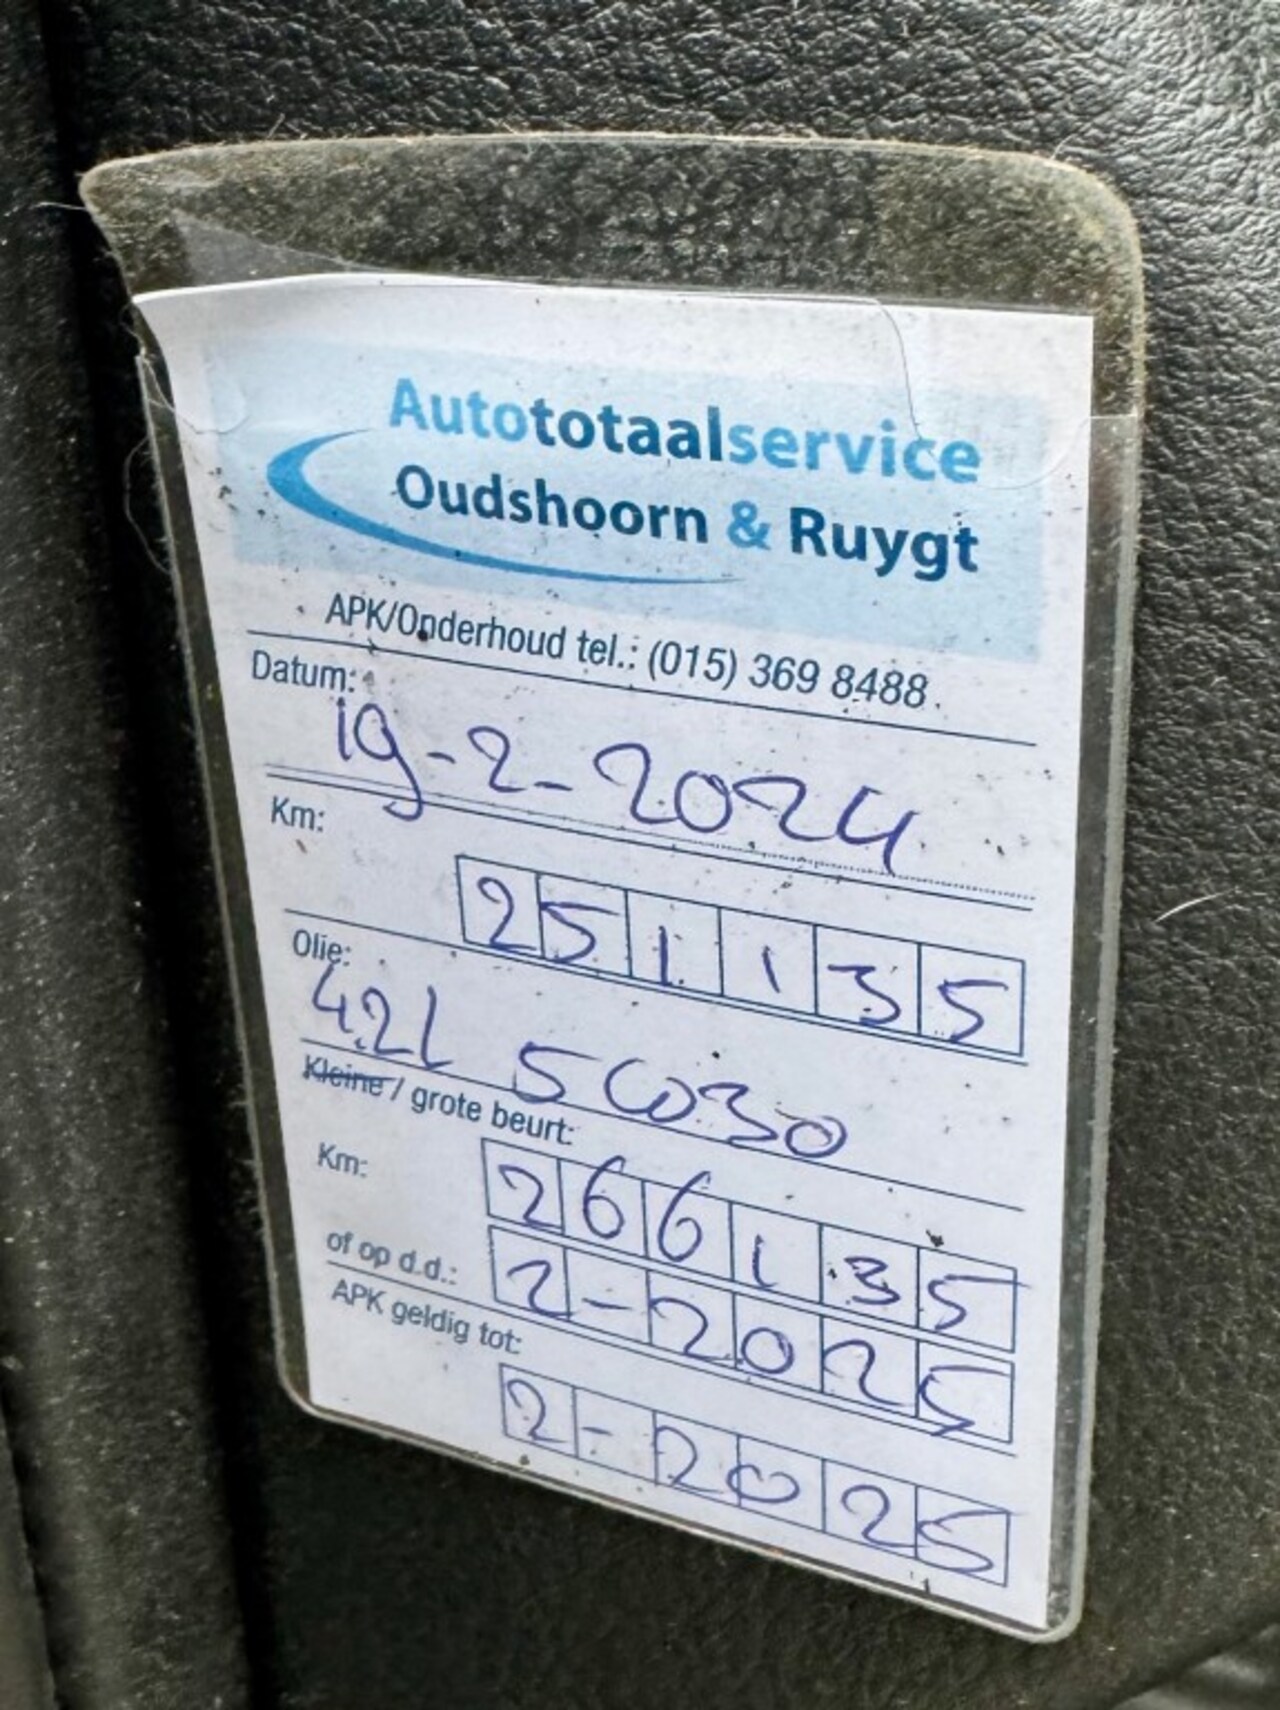 Autototaalservice
Oudshoorn & Ruygt
APK/Onderhoud tel.: (015) 369 8488
Datum:
19-2-2024
Km:
251135
Olie:
4.2l 5W30
Kleine / grote beurt:
Km: 266135
of op d.d.: 2-2025
APK geldig tot:
2-2025